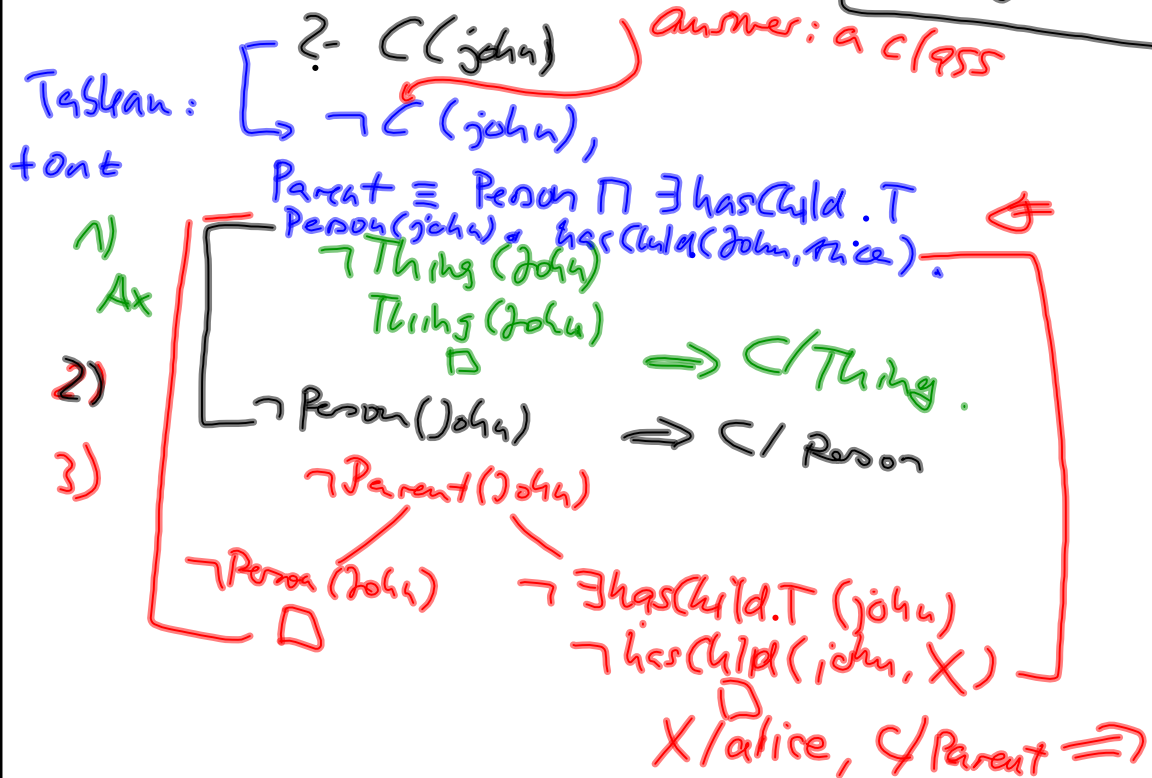 ?- C(john)
Answer: a class
Tableau:
¬C(john),
Parent ≡ Person ⊓ ∃hasChild.T
Person(john). hasChild(John, Alice).
1)
¬Thing(John)
Ax
Thing(John)
□ ⇒ C/Thing.
2)
¬Person(John) ⇒ C/Person
3)
¬Parent(John)
¬Person(John)
¬∃hasChild.T(john)
□
¬hasChild(john, X)
□
X/alice, C/Parent ⇒